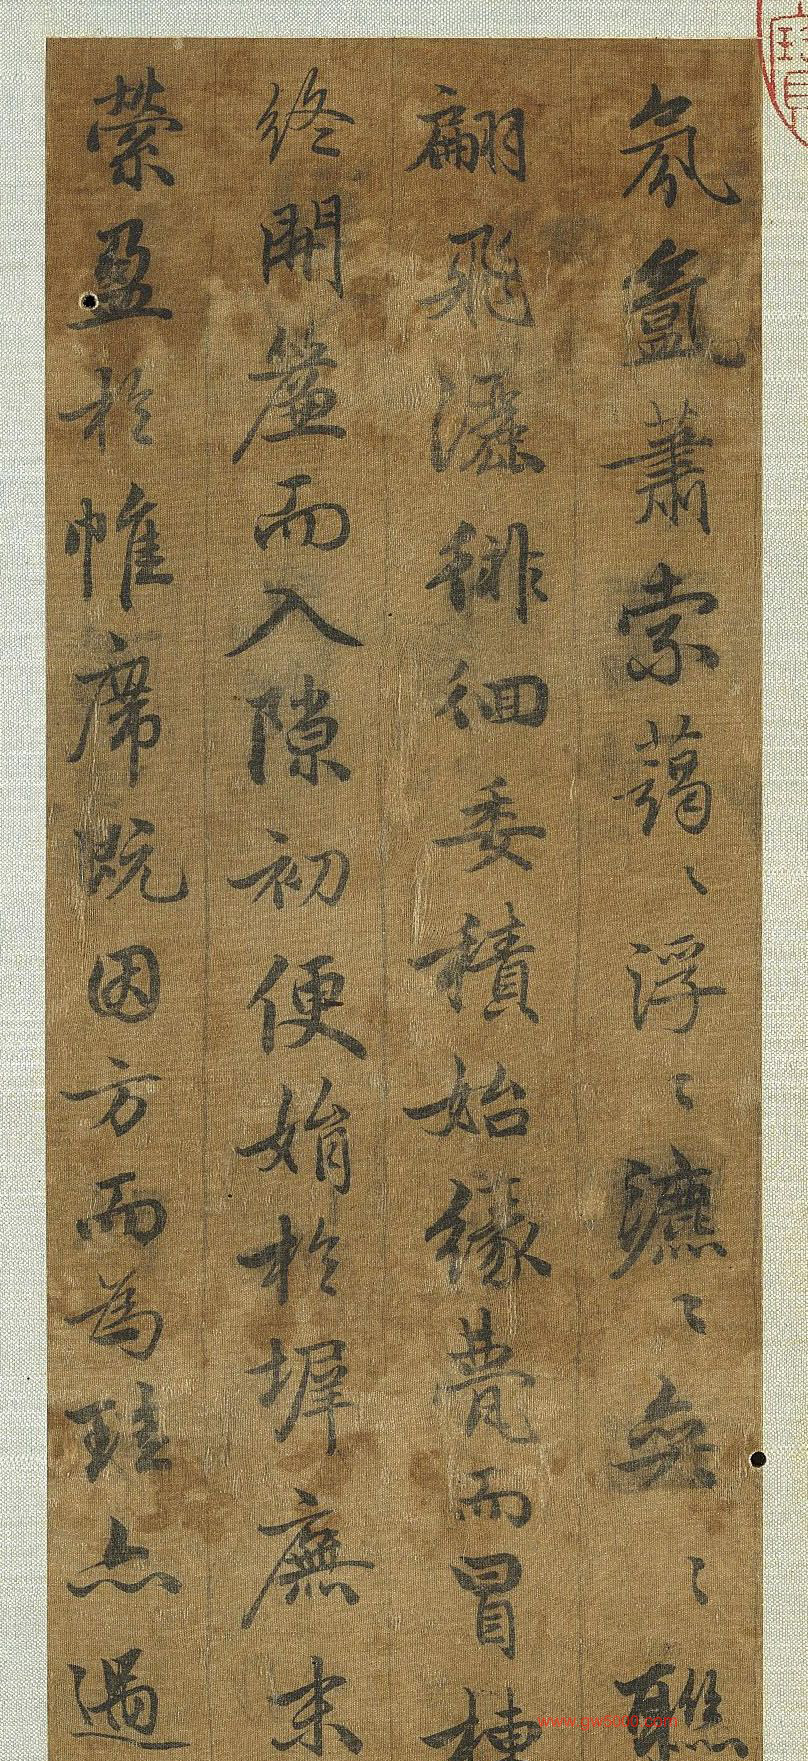 氛氳蕭索藹〻浮〻瀌〻奕〻聯
翩飛灑徘徊委積始緣甍而冒棟
終開簾而入隙初便娟於墀廡末
縈盈於帷席既因方而為珪亦遇
www.gw6000.com